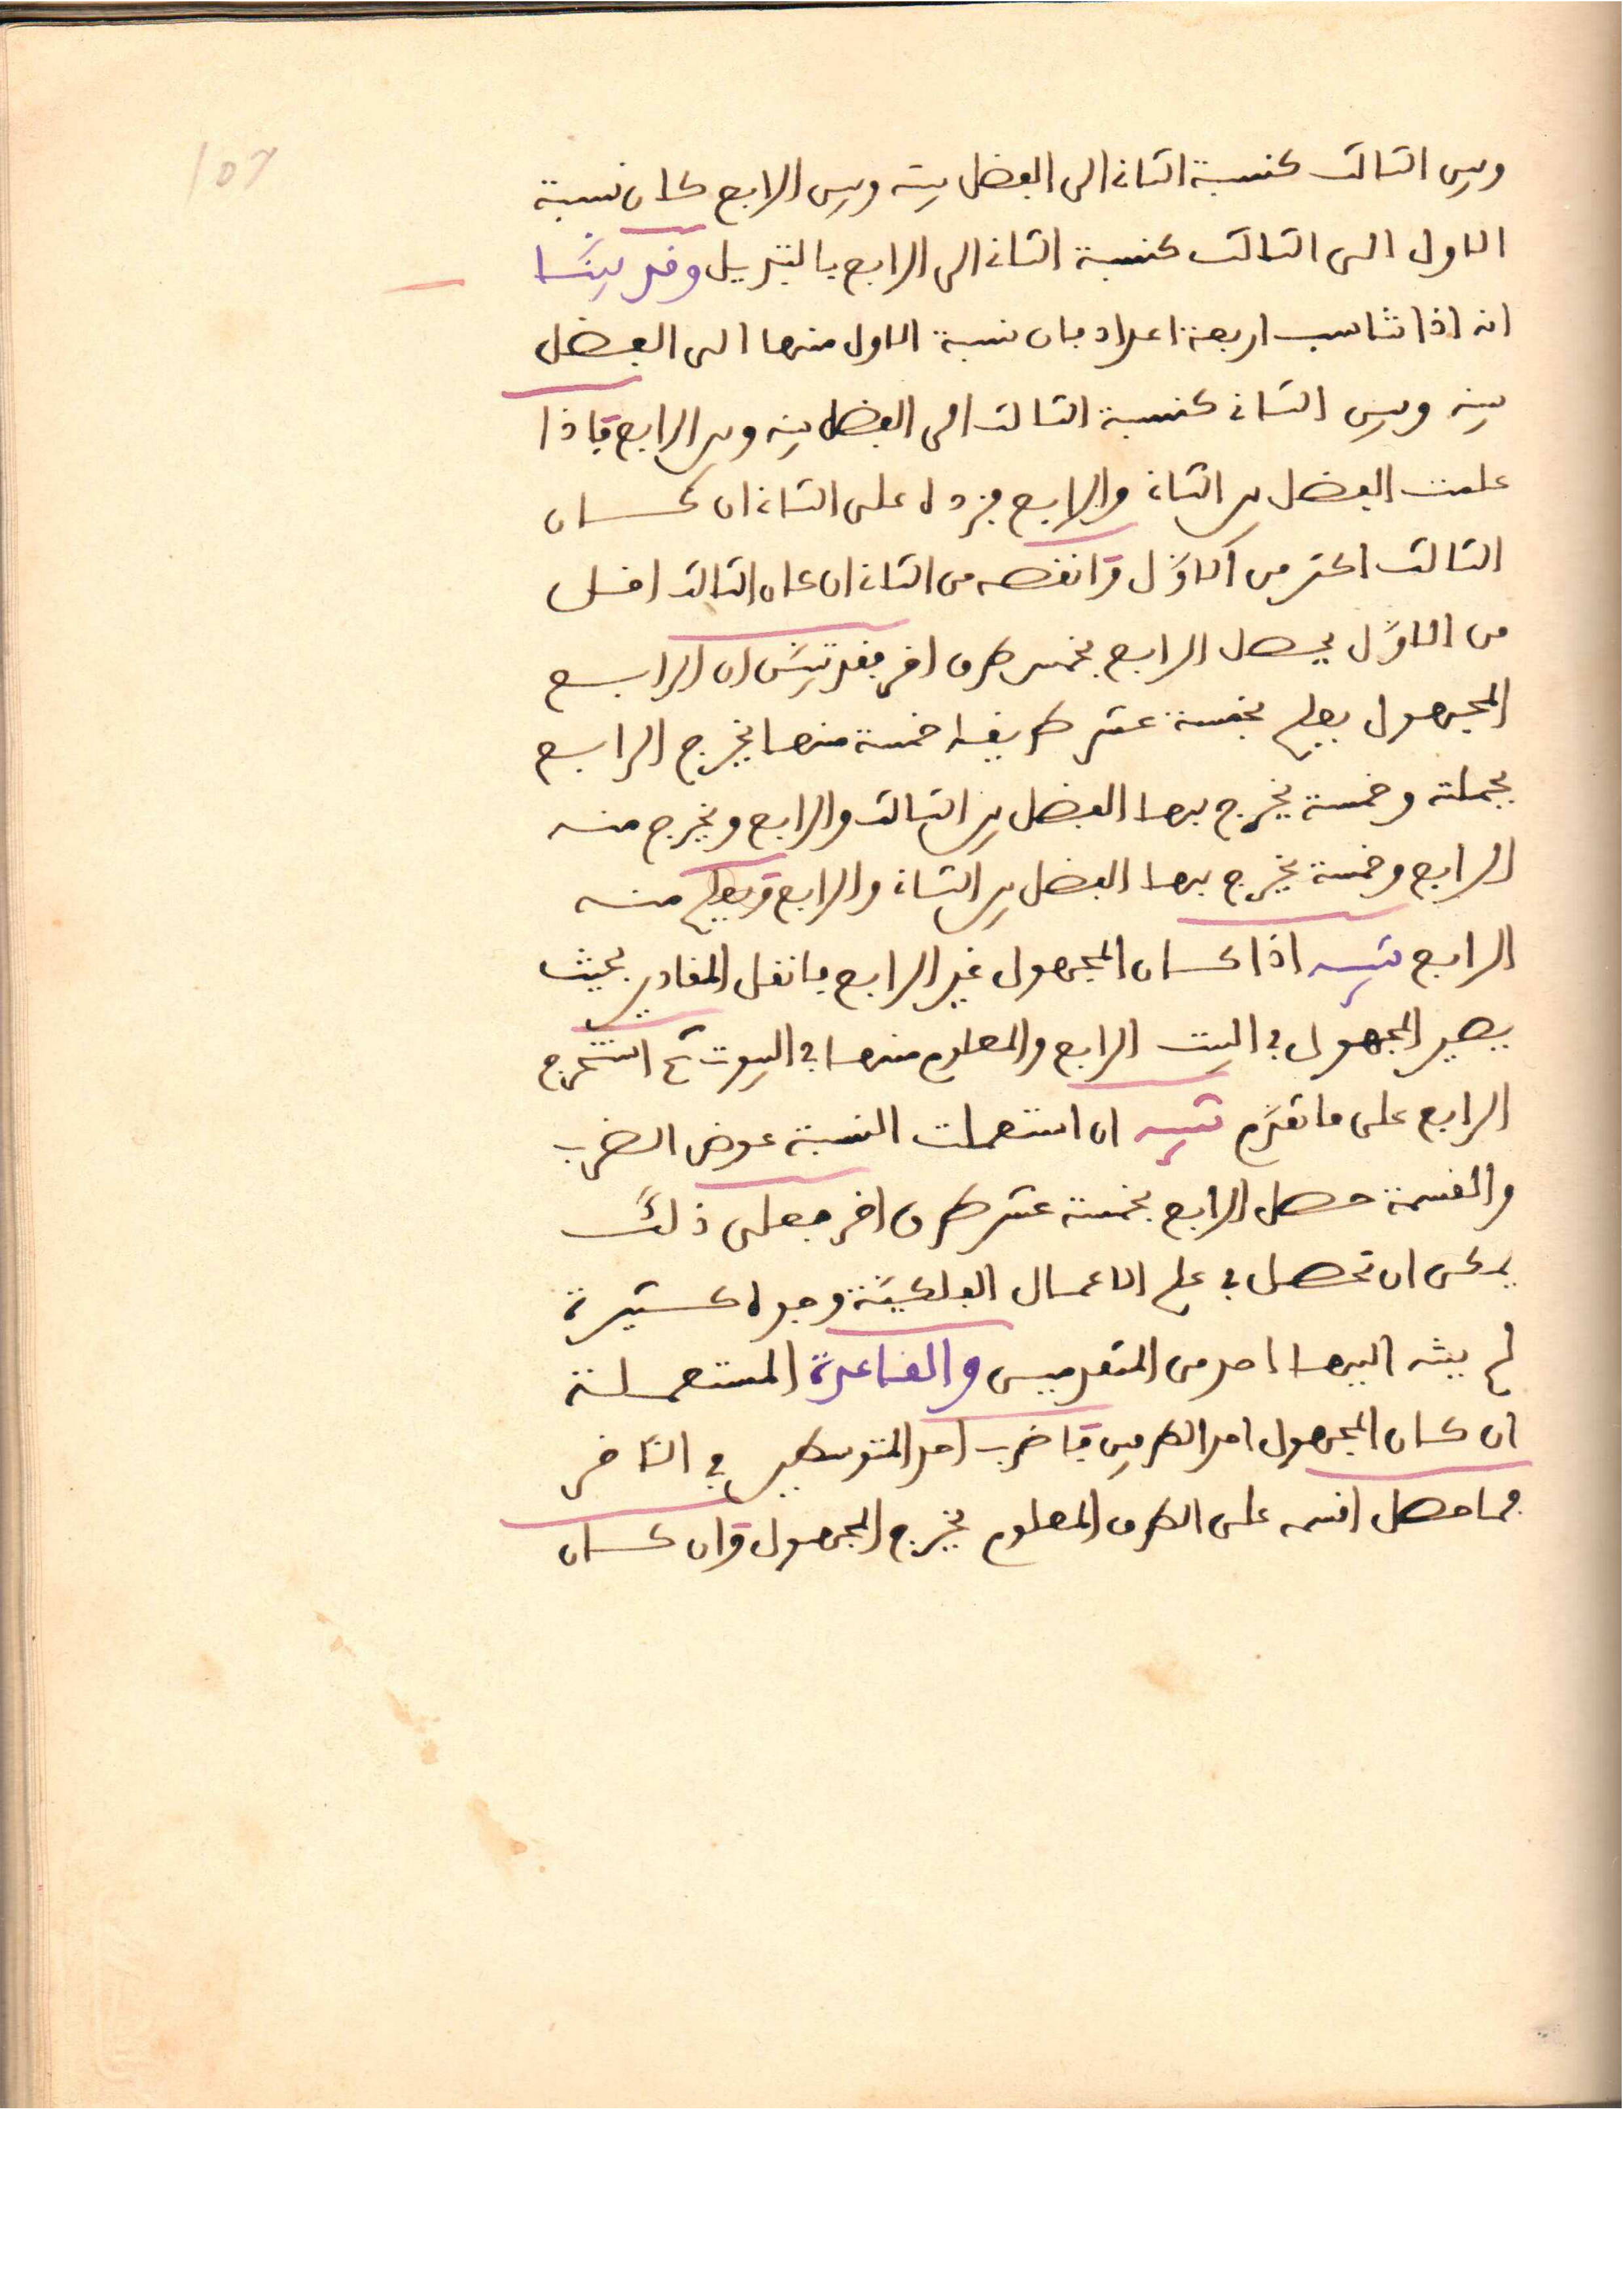 وبين الثالث كنسبة الثانى الى الفضل بينه وبين الرابع كان نسبة
الاول الى الثالث كنسبة الثانى الى الرابع بالتبديل وقد بيَّنَّا
انه اذا تناسب اربعة اعداد فان نسبة الاول منها الى الفضل
بينه وبين الثانى كنسبة الثالث الى الفضل بينه وبين الرابع فاذا
علمت الفضل بين الثانى والرابع فزده على الثانى ان كان
الثالث اكثر من الاوّل وانقصه من الثانى ان كان الثالث اقل
من الاوّل يحصل الرابع بخمس طرق اخر فقد تبيّن ان الرابع
المجهول يعلم بخمسة عشر طريقا خمسة منها يخرج الرابع
بجملته وخمسة يخرج بها الفضل بين الثالث والرابع ويخرج منه
الرابع وخمسة يخرج بها الفضل بين الثانى والرابع ويعلم منه
الرابع تنبيه اذا كان المجهول غير الرابع فانقل المقادير بحيث
يصير المجهول في البيت الرابع والمعلوم منها في البيوت ثم استخرج
الرابع على ما تقدّم تنبيه ان استعملت النسبة عوض الضرب
والقسمة حصل الرابع بخمسة عشر طرق اخر فعلى ذلك
يمكن ان تحصل في علم الاعمال الفلكيّة وجوه كثيرة
لم ينبه اليها احد من المتقدمين والقاعدة المستعملة
ان كان المجهول احد الطرفين فاضرب احد المتوسطين في الآخر
فما حصل اقسمه على الطرف المعلوم يخرج المجهول وان كان